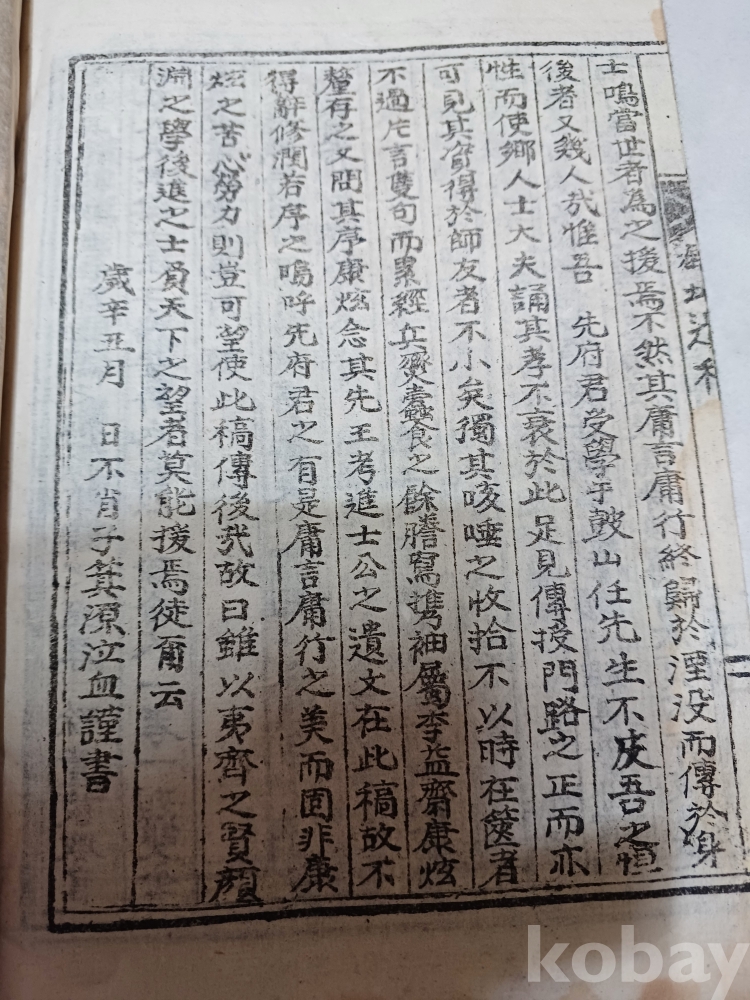 士鳴當世者為之援焉不然其庸言庸行終歸於湮没而傳於身
後者又幾人哉惟吾 先府君受學于鼓山任先生不戾吾之恒
性而使鄉人士大夫誦其孝不衰於此足見傳授門路之正而亦
可見其實得於師友者不小矣獨其咳唾之收拾不以時在篋者
不過片言隻句而累經兵燹蠹食之餘謄寫携袖屬李益齋康炫
釐存之又問其序康炫念其先王考進士公之遺文在此稿故不
得辭修潤若序之嗚呼先府君之有是庸言庸行之美而固非康
炫之苦心勞力則豈可望使此稿傳後哉故曰雖以夷齊之賢顔
淵之學後進之士負天下之望者莫能援焉徒爾云
歲辛丑月 日不肖子箕源泣血謹書
kobay